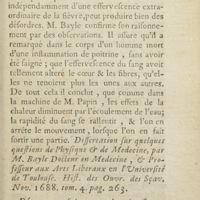 indépendamment d'une effervescence extra-
ordinaire de la fiévre, peut produire bien des
désordres. M. Bayle confirme son raisonne-
ment par des observations. Il assure qu'il a
remarqué dans le corps d'un homme mort
d'une inflammation de poitrine, sans avoir
été saigné; que l'effervescence du sang avoit
tellement altéré le cœur & les fibres, qu'el-
les ne tenoient plus les unes aux autres.
De tout cela il conclut, que comme dans
la machine de M. Papin, les effets de la
chaleur diminuent par l'écoulement de l'eau;
la rapidité du sang se rallentit, & l'on en
arrête le mouvement, lorsque l'on en fait
sortir une partie. Dissertation sur quelques
questions de Physique & de Medecine, par
M. Bayle Docteur en Medecine, & Pro-
fesseur aux Arts Liberaux en l'Université
de Toulouse. Hist. des Ouvr. des Sçav.
Nov. 1688. tom. 4. pag. 263.